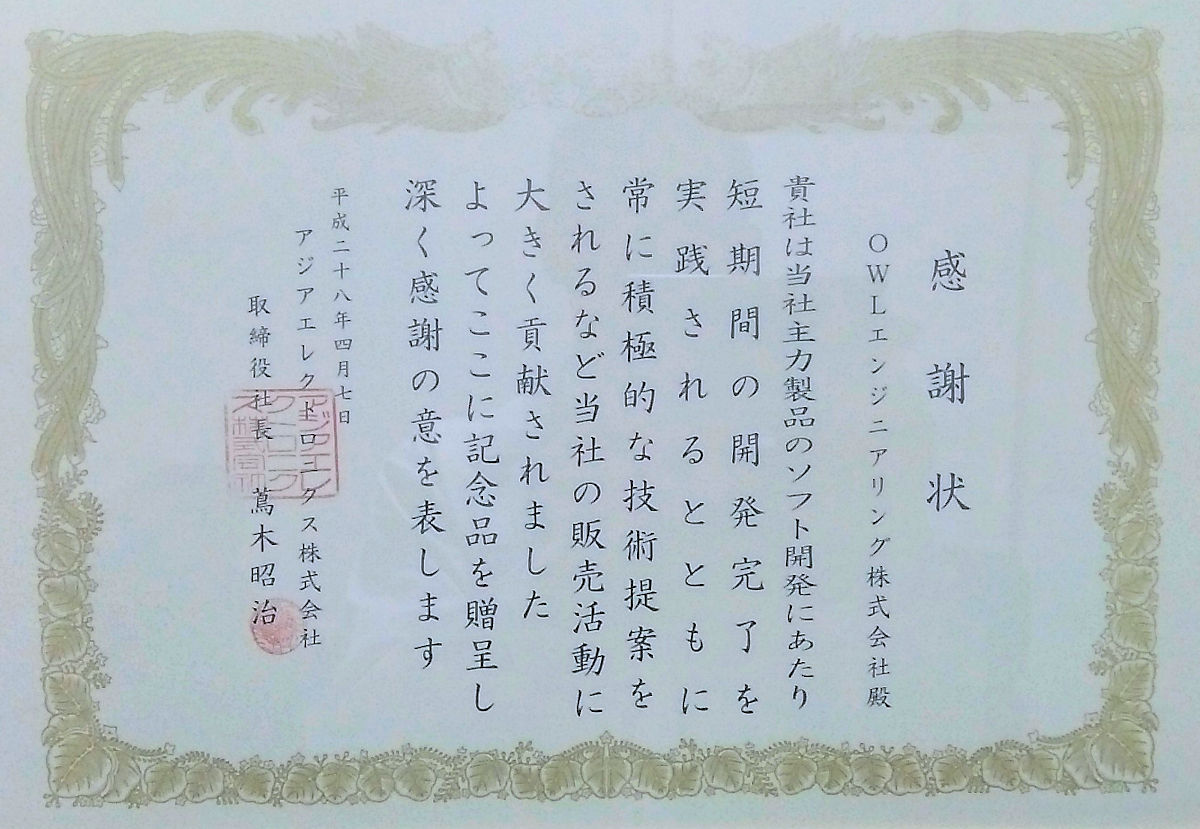 感謝状
OWLエンジニアリング株式会社殿
貴社は当社主力製品のソフト開発にあたり
短期間の開発完了を
実践されるとともに
常に積極的な技術提案を
されるなど当社の販売活動に
大きく貢献されました
よってここに記念品を贈呈し
深く感謝の意を表します
平成二十八年四月七日
アジアエレクトロニクス株式会社
取締役社長 蔦木昭治